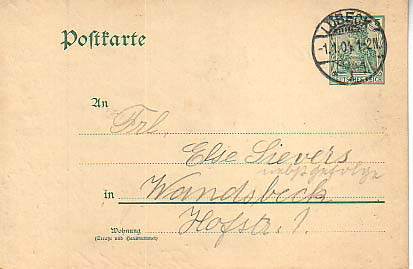 Postkarte
LÜBECK
-1.1.04. 1-2N.
An
Frl.
Else Sievers
nebst Gefolge
in Wandsbeck
Hofstr. 1.
Wohnung
(Straße und Hausnummer)